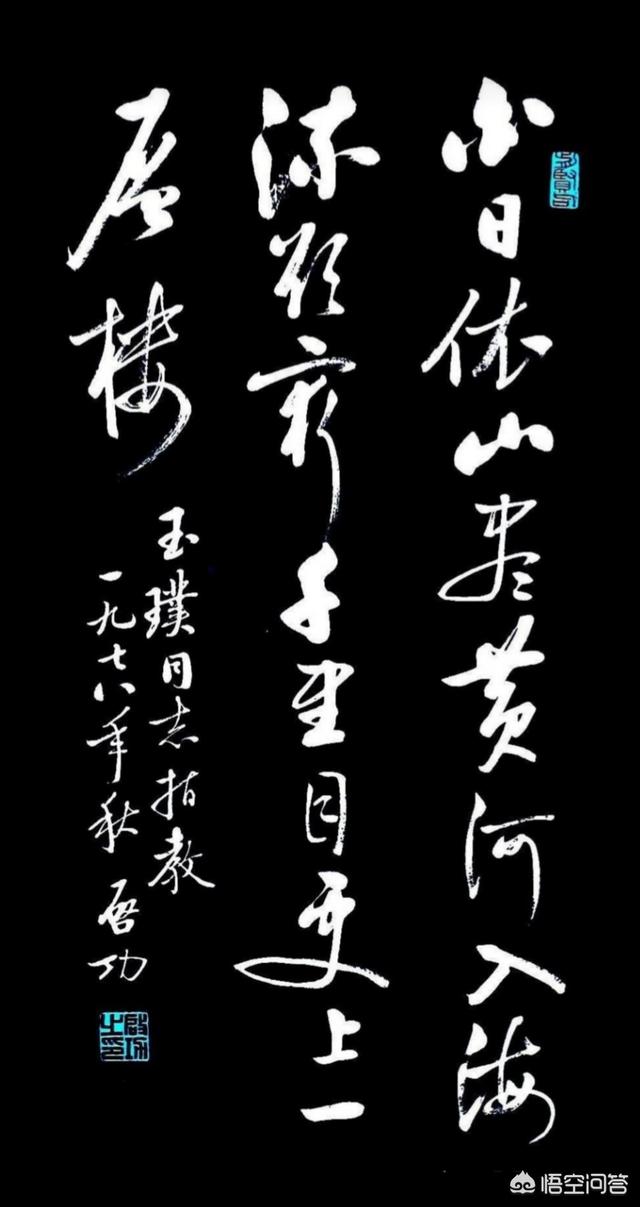 白日依山尽黄河入海
流欲穷千里目更上一
层楼
玉璞同志指教
一九七八年秋 启功
启功之印
悟空问答